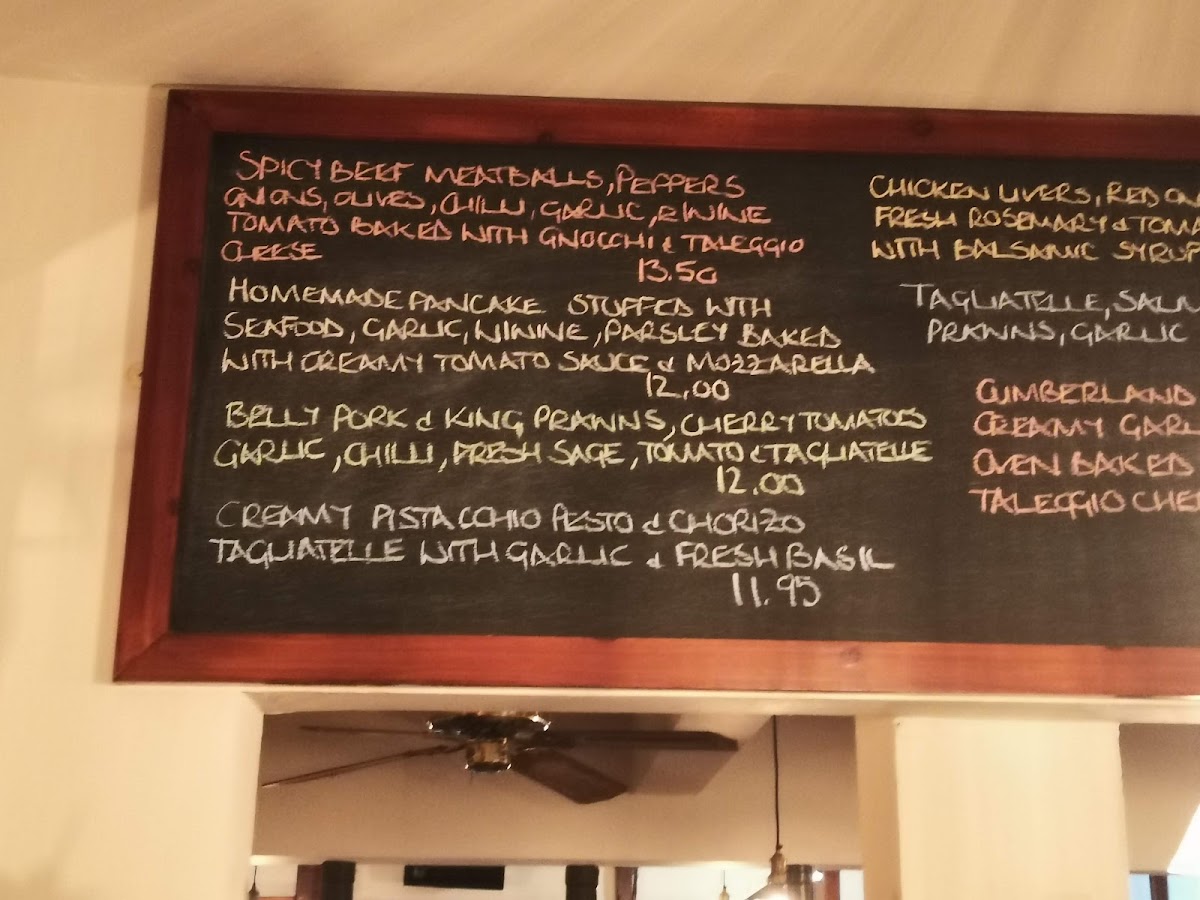 SPICY BEEF MEATBALLS, PEPPERS
ONIONS, OLIVES, CHILLI, GARLIC, R WINE
TOMATO BAKED WITH GNOCCHI & TALEGGIO
CHEESE
13.50
HOMEMADE PANCAKE STUFFED WITH
SEAFOOD, GARLIC, W WINE, PARSLEY BAKED
WITH CREAMY TOMATO SAUCE & MOZZARELLA
12.00
BELLY PORK & KING PRAWNS, CHERRY TOMATOES
GARLIC, CHILLI, FRESH SAGE, TOMATO & TAGLIATELLE
12.00
CREAMY PISTACCHIO PESTO & CHORIZO
TAGLIATELLE WITH GARLIC & FRESH BASIL
11.95
CHICKEN LIVERS, RED
FRESH ROSEMARY &
WITH BALSAMIC SYRUP
TAGLIATELLE,
PRAWNS, GARLIC
CUMBERLAND
CREAMY
OVEN BAKED
TALEGGIO